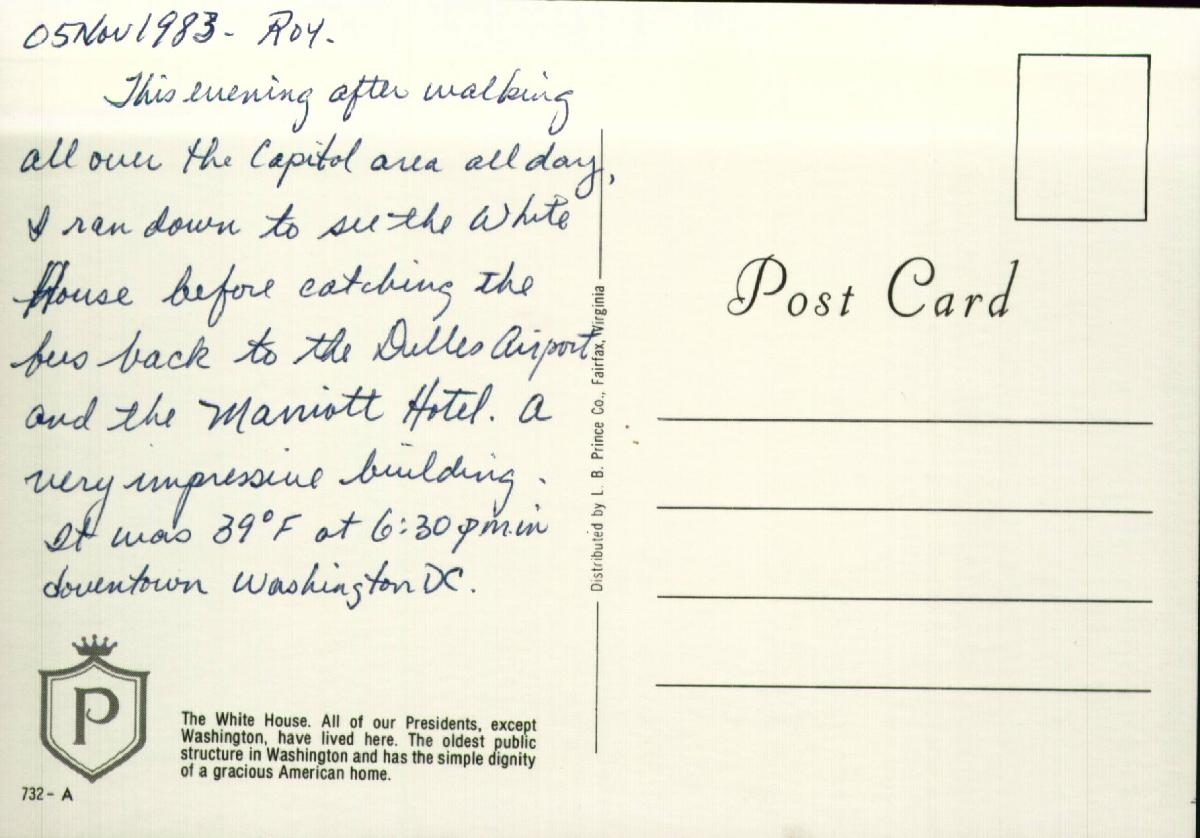 05Nov1983- Roy.
This evening after walking
all over the Capitol area all day,
I ran down to see the White
House before catching the
bus back to the Dulles Airport
and the Marriott Hotel. A
very impressive building.
It was 39°F at 6:30 pm in
downtown Washington DC.
P
The White House. All of our Presidents, except
Washington, have lived here. The oldest public
structure in Washington and has the simple dignity
of a gracious American home.
732- A
Distributed by L. B. Prince Co., Fairfax, Virginia
Post Card